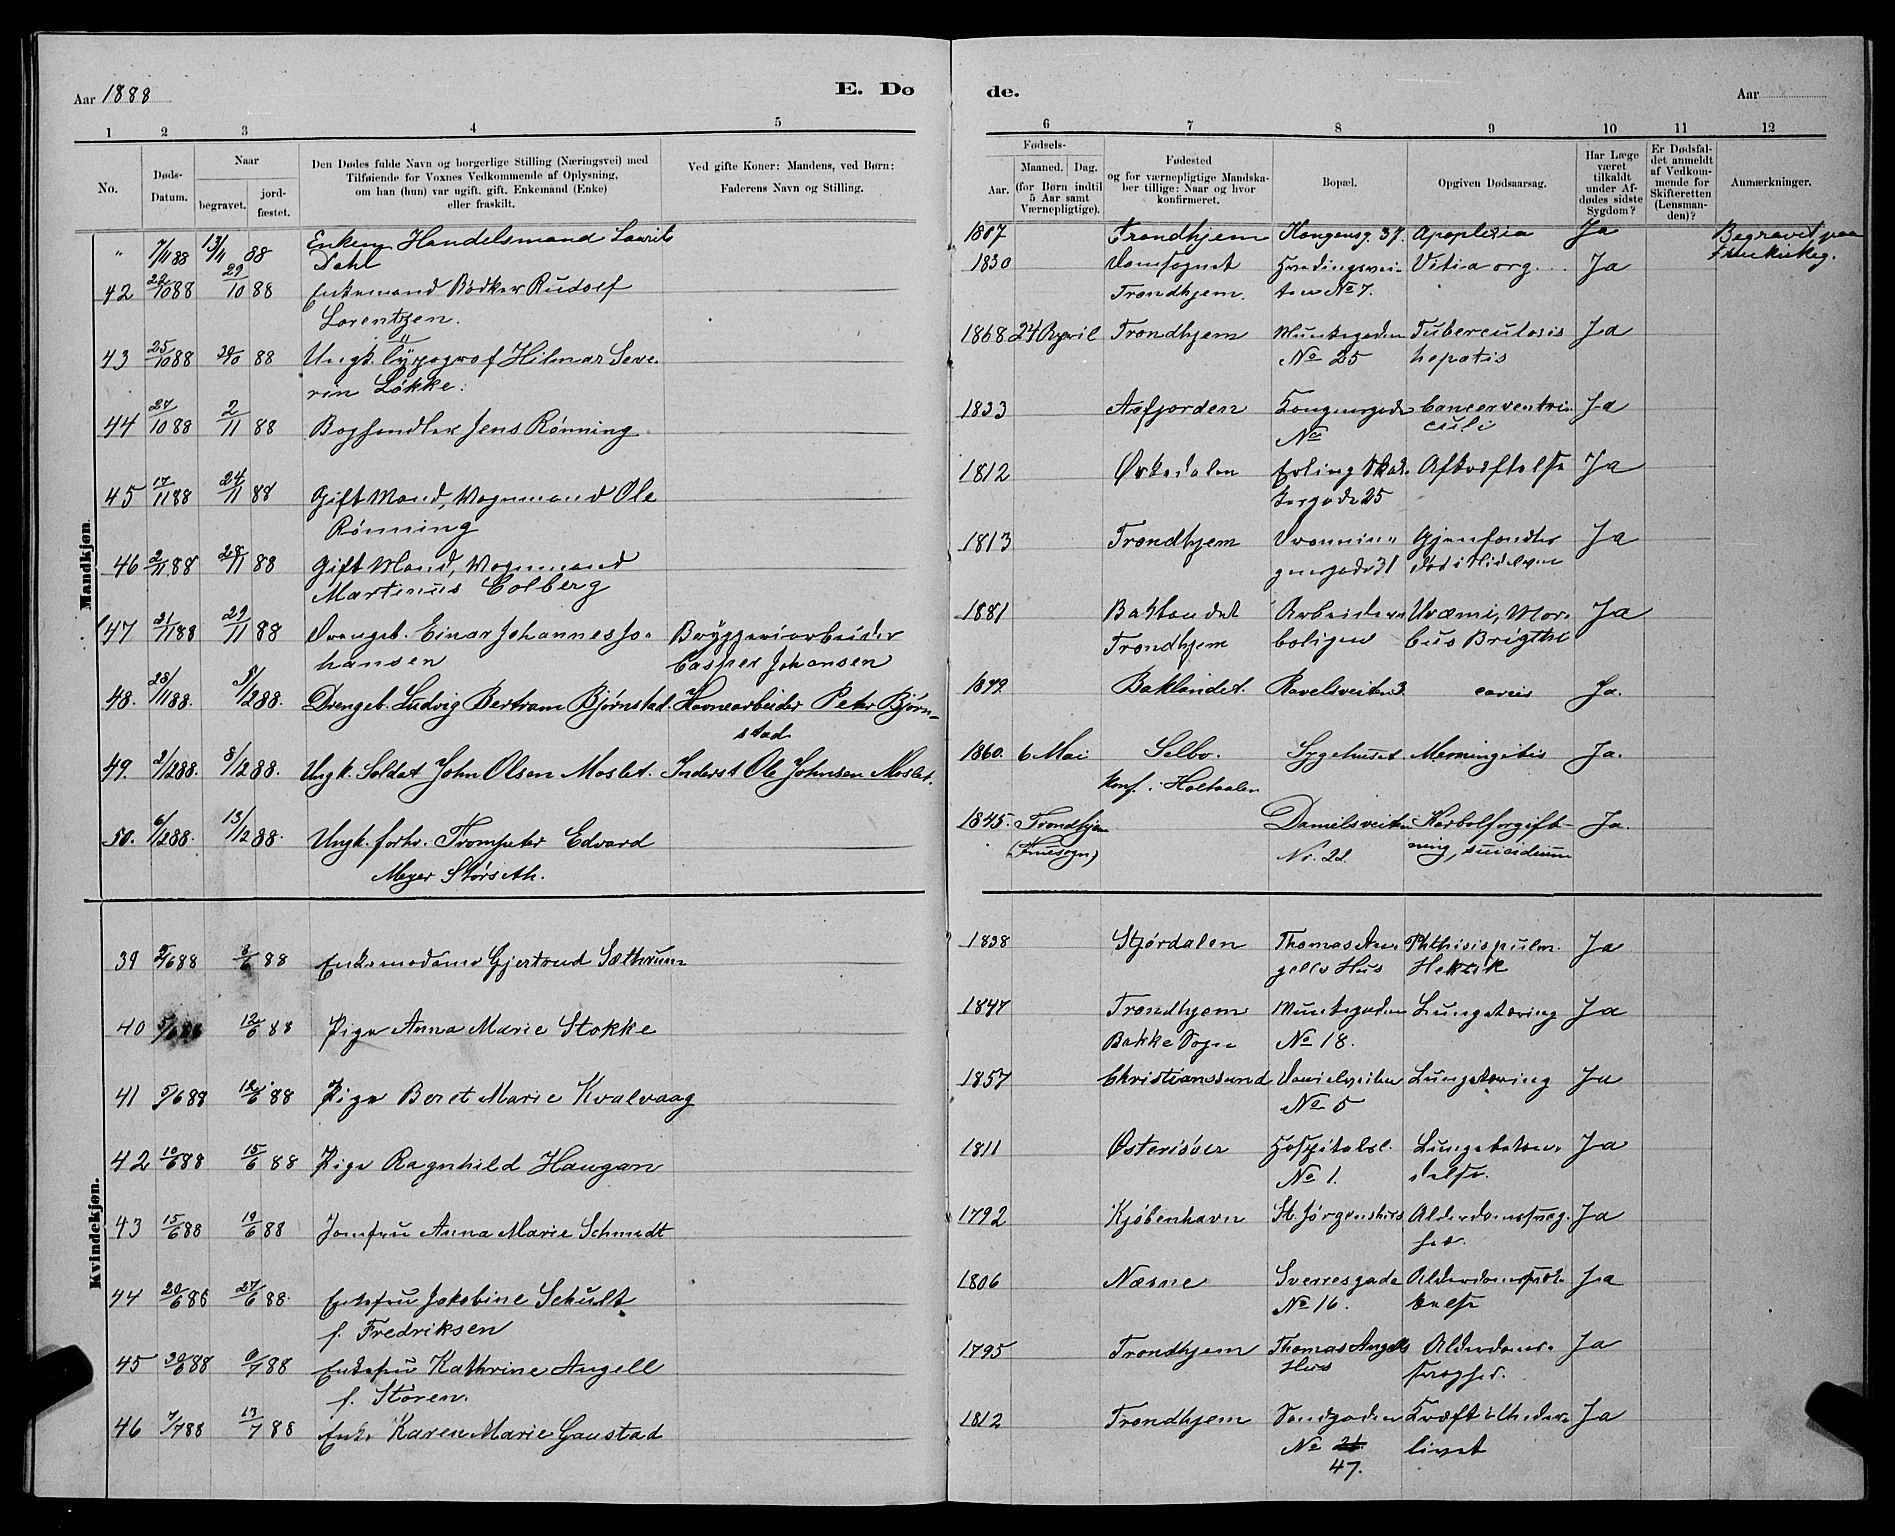 Aar 1888
E. Dø
1 2 3 4 5
No.
Døds-
Datum.
Naar
begravet.
jord-
fæstet.
Den Dødes fulde Navn og borgerlige Stilling (Næringsvei) med
Tilføiende for Voxnes Vedkommende af Oplysning,
om han (hun) var ugift, gift, Enkemand (Enke)
eller fraskilt.
Ved gifte Koner: Mandens, ved Børn:
Faderens Navn og Stilling.
Mandkjøn.
" 7/4 88 13/4 88 Enkem. Handelsmand Laurits
Dahl
42 22/10 88 29/10 88 Enkemand Bødker Rudolf
Lorentzen.
43 25/10 88 30/10 88 Ungk. Typograf Hilmar Seve-
rin Løkke.
44 27/10 88 2/11 88 Boghandler Jens Rønning
45 17/11 88 24/11 88 Gift Mand, Vognmand Ole
Rønning
46 2/11 88 28/11 88 Gift Mand, Vognmand
Martinus Colberg
47 21/11 88 29/11 88 Drengeb. Einar Johannes Jo- Bryggeriarbeider
hansen Casper Johansen
48. 28/11 88. 5/12 88. Drengeb. Ludvig Bertram Bjørnstad. Havnearbeider Peter Bjørn-
stad
49. 2/12 88. 8/12 88. Ungk. Soldat John Olsen Moslet. Inderst Ole Johnsen Moslet.
50. 6/12 88. 13/12 88. Ungk. forhv. Trompeter Edvard
Meyer Størseth.
Kvindekjøn.
39 2/6 88 8/6 88 Enkemadame Gjertrud Sæthrum
40 5/6 88 12/6 88 Pige Anna Marie Stokke
41 5/6 88 12/6 88 Pige Beret Marie Kvalvaag
42 10/6 88 15/6 88 Pige Ragnhild Haugan
43 15/6 88 19/6 88 Jomfru Anna Marie Schmidt
44 20/6 88 27/6 88. Enkefru Jakobine Schult
f. Fredriksen
45 30/6 88 6/7 88 Enkefru Kathrine Angell
f. Støren.
46 7/7 88 13/7 88 Enke Karen Marie Gaustad
de.
Aar
6 7 8 9 10 11 12
Fødsels-
Aar.
Maaned. Dag.
(for Børn indtil
5 Aar samt
Værnepligtige).
Fødested
og for værnepligtige Mandska-
ber tillige: Naar og hvor
konfirmeret.
Bopæl.
Opgiven Dødsaarsag.
Har Læge
været
tilkaldt
under Af-
dødes sidste
Sygdom?
Er Dødsfal-
det anmeldt
af Vedkom-
mende for
Skifteretten
(Lensman-
den)?
Anmærkninger.
1807 Trondhjem Kongensg. 37. Apoplexia Ja Begravet paa
Fruekirkeg.
1830 Domsognet Hvedingsvei- Vitia org. Ja
Trondhjem. ten No 7.
1868 24 April Trondhjem Munkegaden Tuberculosis Ja
No 25 hepatis
1833 Aafjorden Kongensgade Cancer ventri- Ja
No culi
1812 Ørkedalen Erling Skak- Afkræftelse Ja
kesgade 25
1813 Trondhjem Dronnin- Gjenfunden Ja
gensgade 31 død i Nidelven
1881 Baklandet Arbeider- Uræmi, Mor- Ja
Trondhjem boligen bus Brigthi
1879 Baklandet. Ravelsveiten 3. caries Ja.
1860. 6 Mai Selbo. Sygehuset Menningitis Ja.
Konf. i Holtaalen
1845. Trondhjem Danielsveiten Karbolforgift- Ja.
(Fruesogn) Nr. 22. ning, suicidium
1838 Stjørdalen Thomas An- Phthisis pulm. Ja
gells Hus Hektik
1847 Trondhjem Munkegaden Lungetæring Ja
Bakke Sogn No 18.
1857 Christianssund Danielsveiten Lungetæring Ja
No 5
1811 Østerisøer Hospitalsl. Lungebetæn- Ja
No 1. delse.
1792 Kjøbenhavn St. Jørgenshus Alderdomssvag- Ja
hed.
1806 Næsne Sverresgade Ja
No 16.
1795 Trondhjem Thomas Angells Alderdoms- Ja
Hus svaghed.
1812 Trondhjem Sandgaden Kræft i Under- Ja
No 21 livet
47.